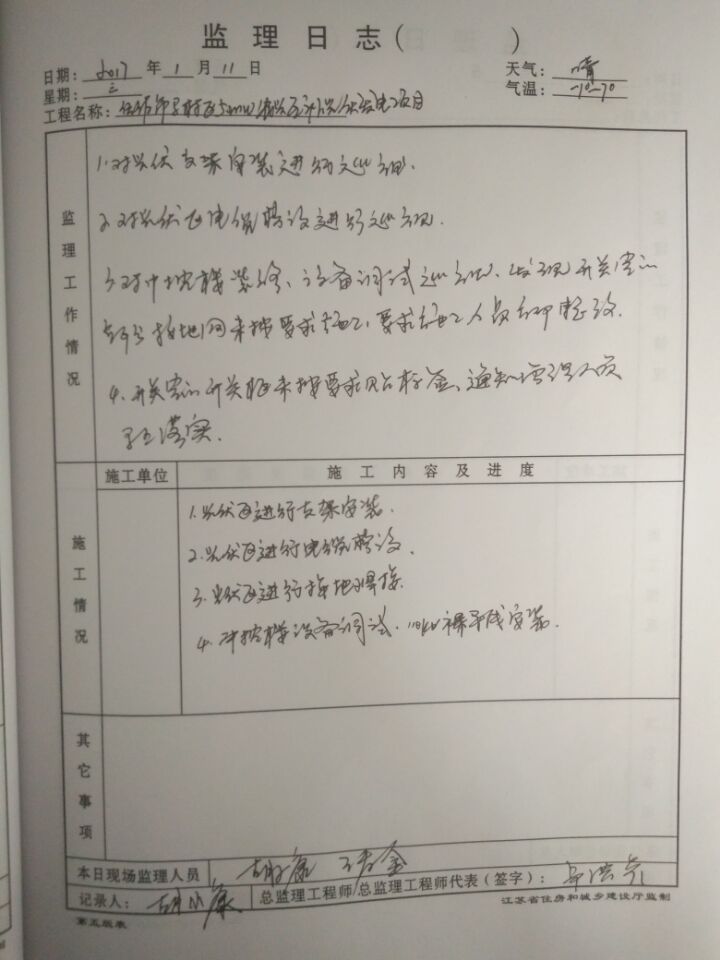 监理日志( )
日期: 2017 年 1 月 11 日 天气: 晴
星期: 三 气温: -7°~7°
工程名称: 5MW 发电项目
监理工作情况
1.对光伏支架安装进行巡视.
2.对光伏区电缆敷设进行巡视.
3.对中控楼装修、设备调试巡视、发现开关室
接地网未按要求施工,要求施工人员立即整改.
4.开关室开关柜未按要求贴标签,通知管理人员
落实.
施工情况
施工单位 施工内容及进度
1.光伏区进行支架安装.
2.光伏区进行电缆敷设.
3.光伏区进行接地焊接.
4.中控楼设备调试. 10kV裸导线安装.
其它事项
本日现场监理人员 胡小康
记录人: 胡小康 总监理工程师/总监理工程师代表(签字):
第五版表 江苏省住房和城乡建设厅监制